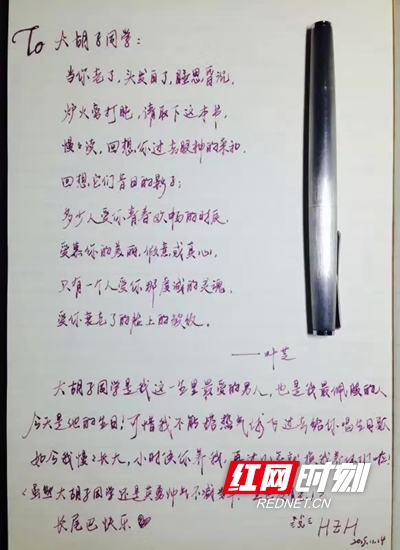 To 大胡子同学：
当你老了，头发白了，睡思昏沉，
炉火旁打盹，请取下这本书，
慢慢读，回想你过去眼神的柔和
回想它们昔日的影子；
多少人爱你青春欢畅的时辰，
爱慕你的美丽，假意或真心，
只有一个人爱你那虔诚的灵魂，
爱你衰老了的脸上的皱纹。
——叶芝
大胡子同学是我这一生里最爱的男人，也是我最佩服的人
今天是他的生日！可惜我不能搭热气球下过去给你唱生日歌
如今我慢慢长大，小时候你养我，
（虽然大胡子同学还是英勇帅气不减
长尾巴快乐
HZH
2015.11.14
红网时刻
REDNET.CN